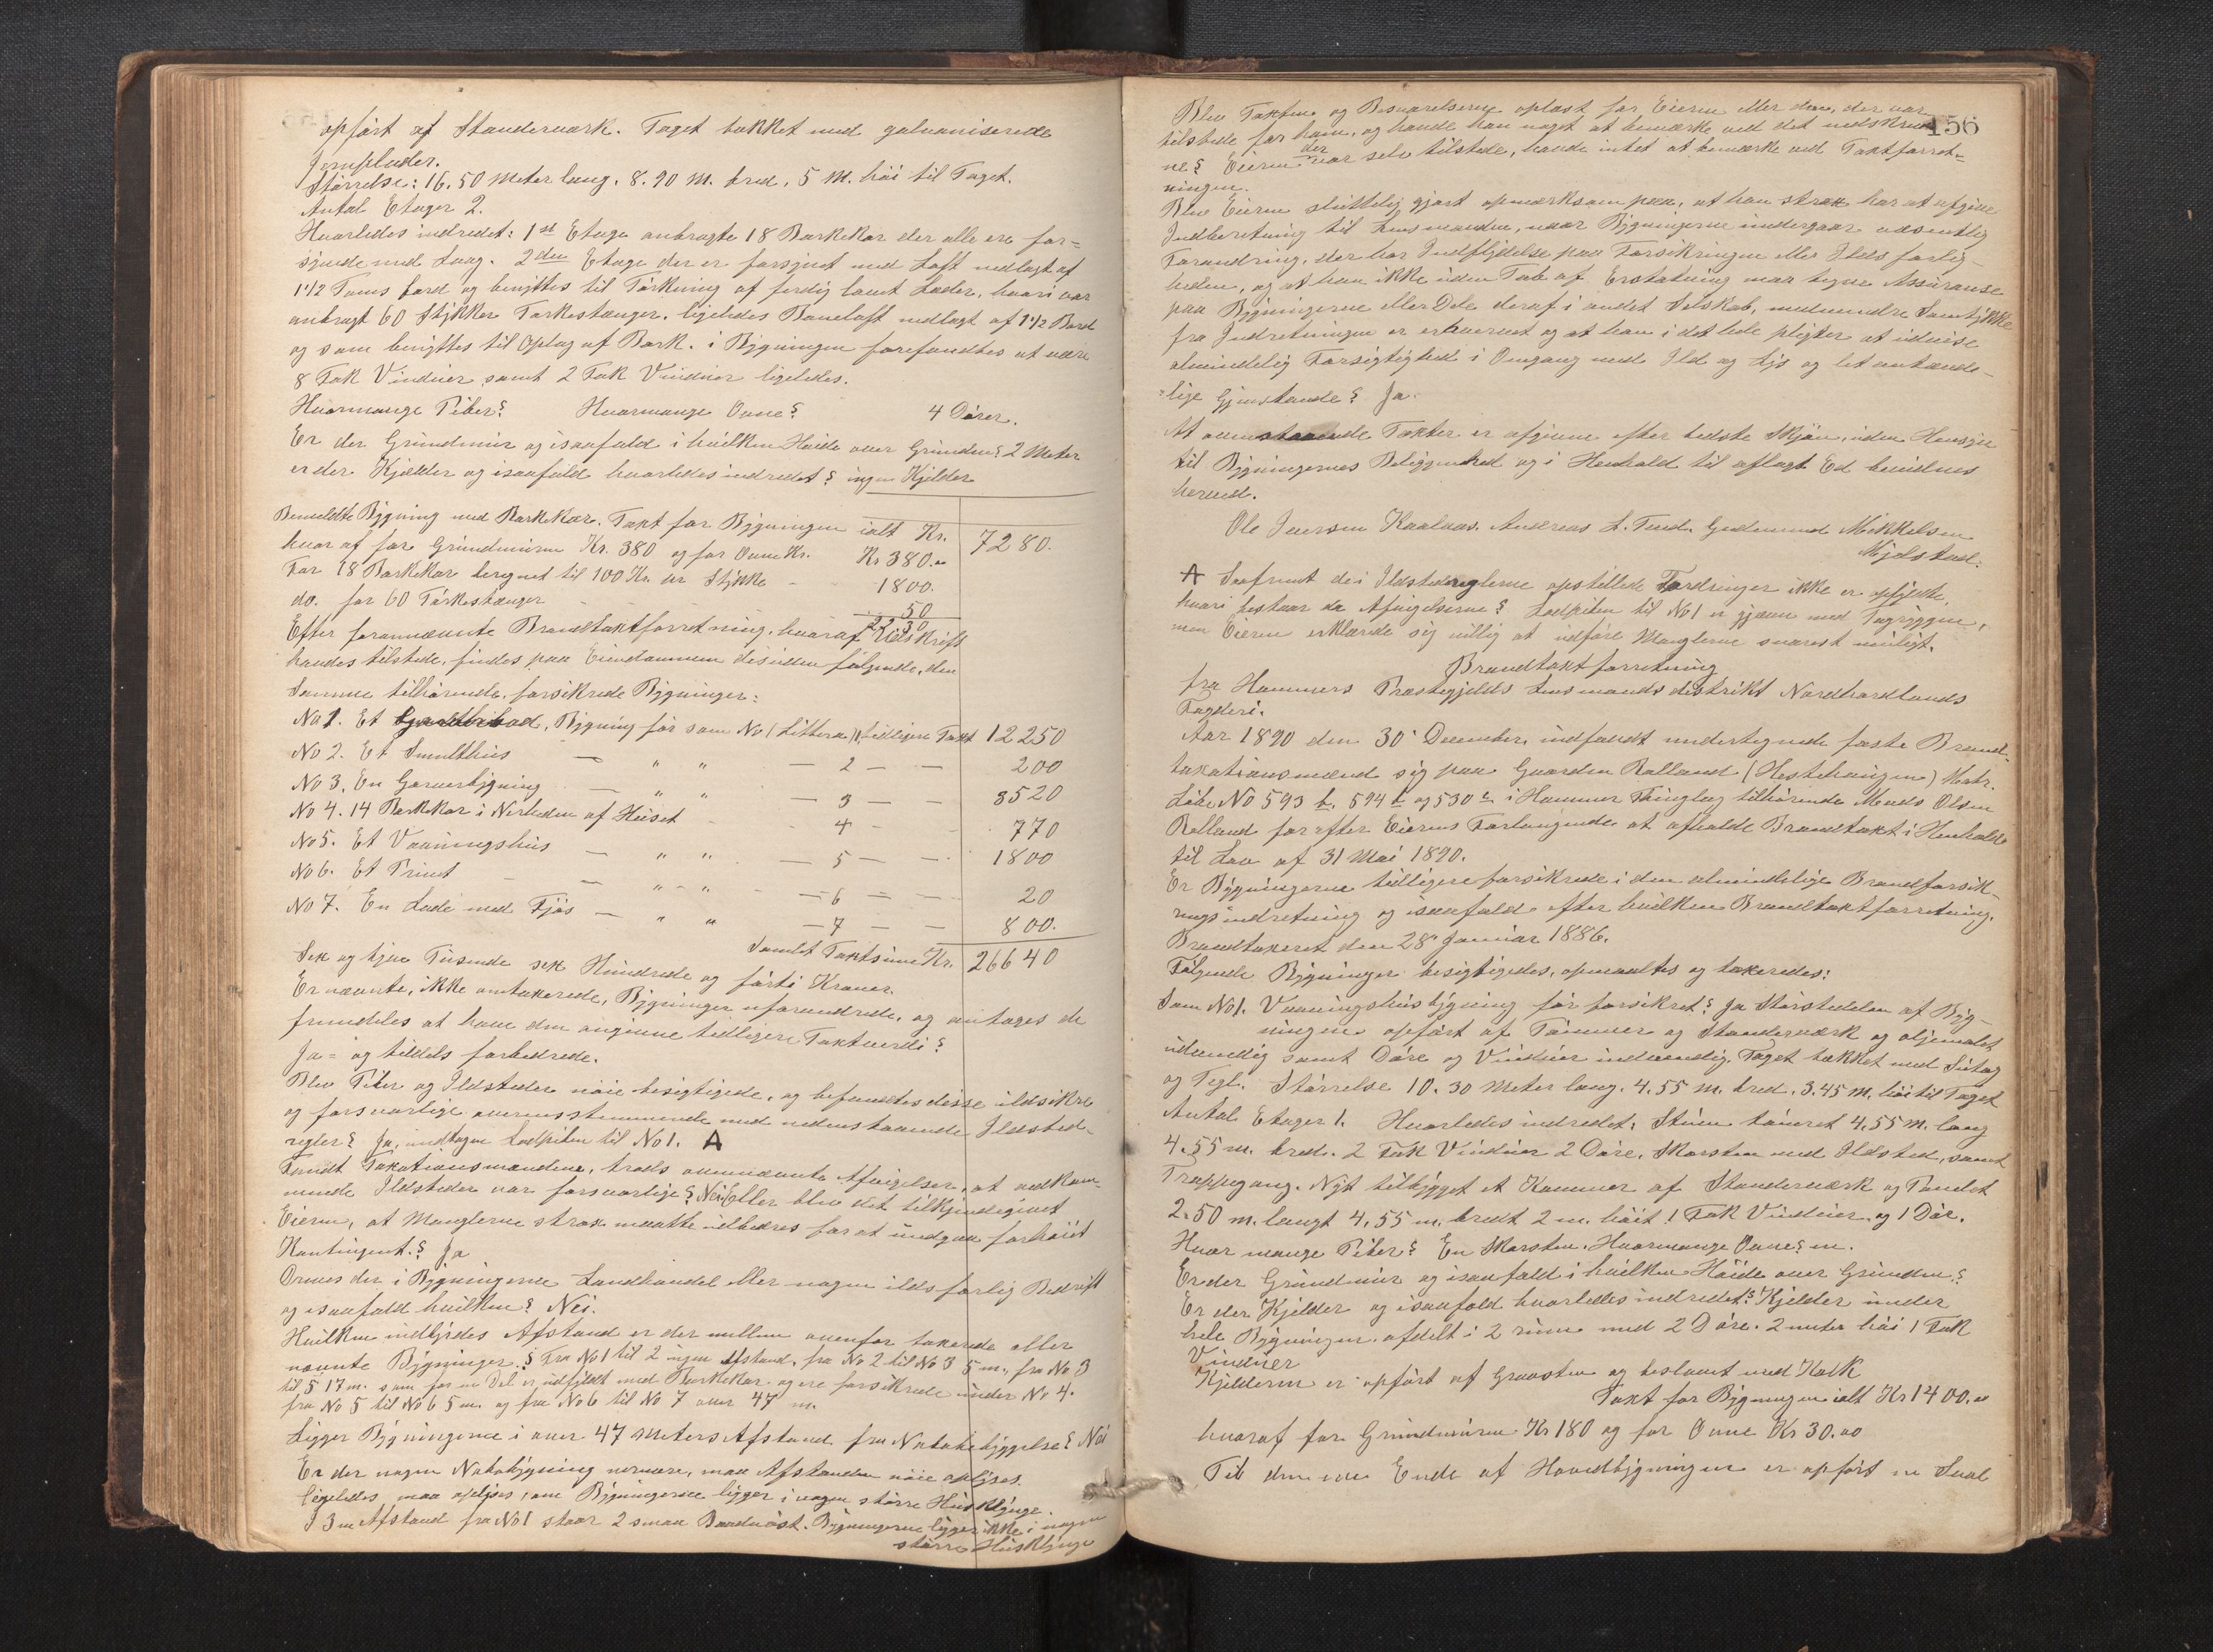 opført af Standerværk. Taget tækket med galvaniserede
Jernplader.
Størrelse: 16,50 Meter lang, 8.90 M. bred, 5 M. höi til Taget.
Antal Etager 2.
Hvorledes indredet: 1st Etage anbragte 18 Barkekar der alle ere for=
synede med Laag. 2den Etage der er forsynet med Loft nedlagt af
1 1/2 Toms bord og benyttes til Törkning af ferdig lavet Læder, hvori var
anbragt 60 Stykker Törkestænger, ligeledes Baneloft nedlagt af 1 1/2 Bord
og som benyttes til Oplag af Bark. i Bygningen forefandtes at være
8 Fak Vinduer samt 2 Fak Vinduer ligeledes.
Hvormange Piber? Hvormange Ovne? 4 Dörer.
Er der Grundmur og isaafald i hvilken Höide over Grunden? 2 Meter
er der Kjælder og isaafald hvorledes indredet? ingen Kjelder
Bemeldte Bygning med Barkekar. Taxt for Bygningen ialt Kr. 7280.
hvor af for Grundmuren Kr. 380 og for Ovne Kr. Kr 380.
For 18 Barkekar beregnet til 100 Kr. pr Stykke - 1800.
do. for 60 Törkestænger 50
2230
Efter forannævnte Brandtaxtforretning, hvoraf Udskrift
havdes tilstede, findes paa Eiendommen desuden følgende, den
Samme tilhörende, forsikrede Bygninger:
No 1. Et Bygning før som No (Littera) 1 tidligere Taxt 12250
No 2. Et Smulthus — " " — 2 — — 200
No 3. En Garverbygning — " " — 3 — — 3520
No 4. 14 Barkekar i Nerheden af Huset - - 4 - - 770
No 5. Et Vaaningshus — " " — 5 — — 1800
No 6. Et Privet — " - " - — 6 — — 20
No 7. En Lade med Fjös — " " — 7 — — 800.
Samlet Taxtsum Kr. 26640
Sex og tyve Tusende sex Hundrede og förti Kroner.
Er nævnte, ikke omtaxerede, Bygninger uforandrede, og antages de
fremdeles at have den angivne tidligere Taxtværdi?
Ja = og tildels forbedrede.
Blev Piber og Ildsteder nöie besigtigede, og befandtes disse ildsikre
og forsvarlige overensstemmende med nedenstaaende Ildsted-
regler? Ja, undtagen Lodpiben til No 1. A
Fandt Taxationsmændene, trods ovennævnte Afvigelser, at vedkom-
mende Ildsteder var forsvarlige? Nei Eller blev det tilkjendegivet
Eieren, at Manglerne strax maatte udbedres for at undgaa forhöiet
Kontingent? Ja
Drives der i Bygningerne Landhandel eller nogen ildsfarlig Bedrift
og isaafald hvilken? Nei.
Hvilken indbyrdes Afstand er der mellem ovenfor taxerede eller
nævnte Bygninger? Fra No 1 til 2 ingen Afstand, fra No 2 til No 3 5 m., fra No 3
til 5 17 m. som for en Del er udfyldt med Barkekar og ere forsikrede under No 4.
fra No 5 til No 6 5 m. og fra No 6 til No 7 over 47 m.
Ligger Bygningerne i over 47 Meters Afstand fra Nabobebyggelse? Nei
Er der nogen Nabobygning nærmere, maa Afstanden nöie oplyses.
ligeledes maa oplyses, om Bygningerne ligger i nogen större Husklynge.
I 3 m Afstand fra No 1 staar 2 smaa Baadnöst. Bygningerne ligger ikke i nogen
större Husklynge
156
Blev Taxten og Besvarelserne oplæst for Eieren eller den, der var
tilstede for ham, og havde han noget at bemærke ved det nedskrev
ne? Eieren der var selv tilstede, havde intet at bemærke ved Taxtforret=
ningen.
Blev Eieren sluttelig gjort opmærksom paa, at han strax har at afgive
Indberetning til Lensmanden, naar Bygningerne undergaar væsentlig
Forandring, der har Indflydelse paa Forsikringen eller Ildsfarlig-
heden, og at han ikke uden Tab af Erstatning maa tegne Assurance
paa Bygningerne eller Dele deraf i andet Selskab, medmindre Samtykke
fra Indretningen er erhvervet og at han i det hele pligter at udvise
almindelig Forsigtighed i Omgang med Ild og Lys og let antænde-
=lige Gjenstande? Ja.
At ovenstaaende Taxter er afgivne efter bedste Skjön, uden Hensyn
til Bygningernes Beliggenhed og i Henhold til aflagt Ed bevidnes
herved.
Ole Jensen Kaalaas. Andreas L. Tved. Gudmund Mikkelsen
Mjelstad.
A Saafremt de i Ildstedreglerne opstillede Fordringer ikke er opfyldte,
hvori bestaar da Afvigelserne? Lodpiben til No 1 er gjævn med Tagryggen,
men Eieren erklærede sig villig at udføre Manglerne snarest muligt.
Brandtaxtforretning
fra Hammers Præstegjelds Lensmandsdistrikt Nordhordlands
Fogderi.
Aar 1890 den 30' December indfandt undertegnede faste Brand-
taxationsmænd sig paa Gaarden Rolland (Hestehaugen) Matr.
Löbe No 593 b, 594 b og 530 c i Hammer Thinglag tilhörende Mads Olsen
Rolland for efter Eierens Forlangende at afholde Brandtaxt i Henhold
til Lov af 31 Mai 1890.
Er Bygningerne tidligere forsikrede i den almindelige Brandforsik-
ringsindretning og isaafald efter hvilken Brandtaxtforretning.
Brandtaxeret den 28' Januar 1886.
Følgende Bygninger besigtigedes, opmaaltes og taxeredes:
Som No 1. Vaaningshusbygning før forsikret? Ja Störstedelen af Byg-
ningen opført af Tömmer og Standerværk og oljemalet
udvendig samt Döre og Vinduer indvendig. Taget tækket med Sutag
og Tegl. Störrelse 10.30 Meter lang. 4,55 m. bred. 3.45 m. höi til Taget
Antal Etager 1. Hvorledes indredet: Stuen tömret 4,55 m. lang
4,55 m. bred. 2 Fak Vinduer 2 Döre. Skorsten med Ildsted, samt
Trappegang. Nyt tilbygget et Kammer af Standerværk og Panelet
2.50 m. langt 4,55 m. bredt 2 m. höit 1 Fak Vinduer og 1 Dör.
Hvor mange Piber? En Skorsten. Hvormange Ovne? en.
Er der Grundmur og isaafald i hvilken Höide over Grunden?
Er der Kjelder og isaafald hvorledes indredet? Kjelder under
hele Bygningen, afdelt i 2 rum med 2 Döre. 2 meter höi 1 Fak
Vinduer
Kjelderen er opført af Graasten og beslaaet med Kalk
Taxt for Bygningen ialt Kr 1400.
hvoraf for Grundmuren Kr 180 og for Ovne Kr 30.00
Til den ene Ende af Hovedbygningen er opført en Sval